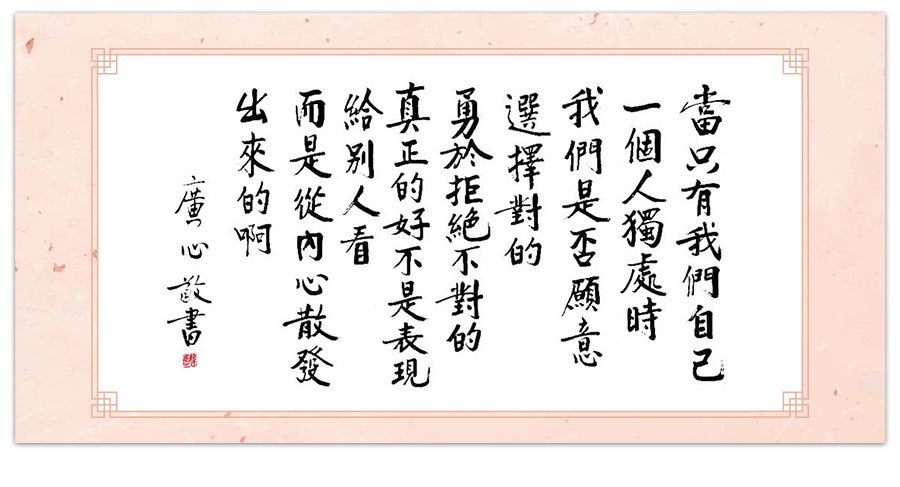 當只有我們自己
一個人獨處時
我們是否願意
選擇對的
勇於拒絕不對的
真正的好不是表現
給別人看
而是從內心散發
出來的啊
廣心敬書